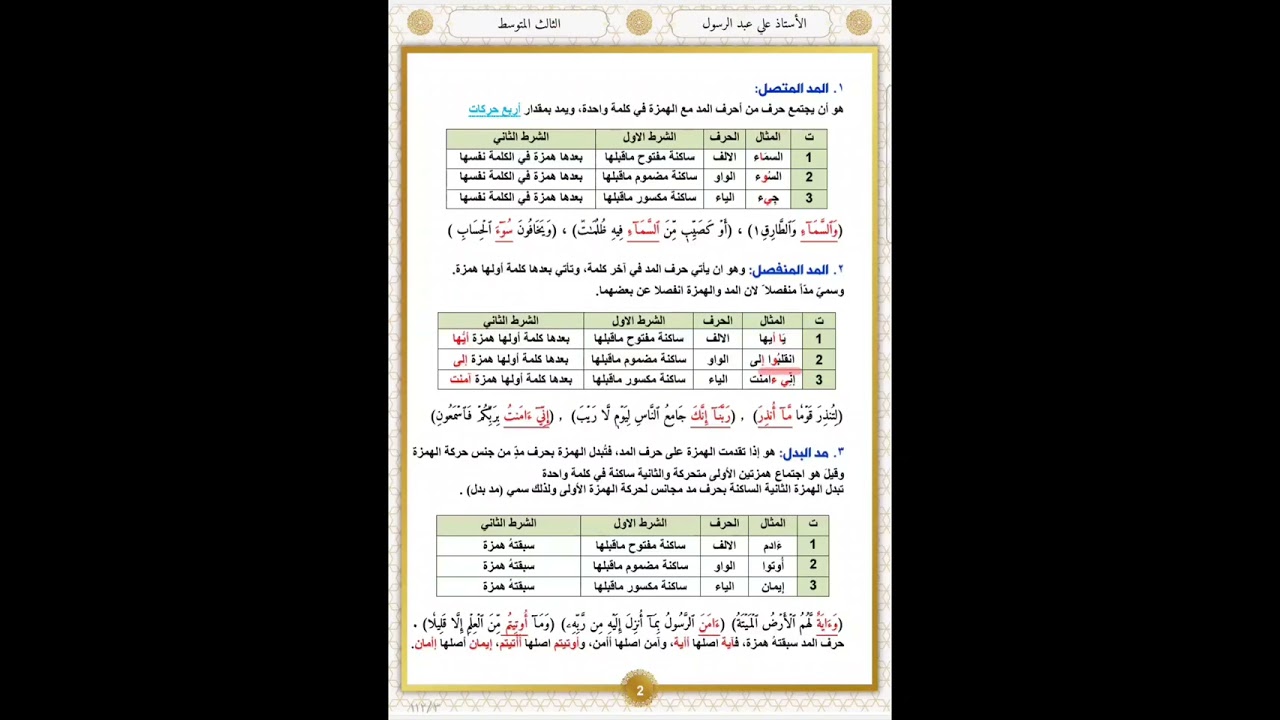 الأستاذ علي عبد الرسول
الثالث المتوسط
١. المد المتصل:
هو أن يجتمع حرف من أحرف المد مع الهمزة في كلمة واحدة، ويمد بمقدار أربع حركات
ت المثال الحرف الشرط الاول الشرط الثاني
1 السماء الالف ساكنة مفتوح ماقبلها بعدها همزة في الكلمة نفسها
2 السُوء الواو ساكنة مضموم ماقبلها بعدها همزة في الكلمة نفسها
3 جِيء الياء ساكنة مكسور ماقبلها بعدها همزة في الكلمة نفسها
(وَٱلسَّمَآءِ وَٱلطَّارِقِ١) ، (أَوۡ كَصَيِّبٖ مِّنَ ٱلسَّمَآءِ فِيهِ ظُلُمَٰتٞ) ، (وَيَخَافُونَ سُوٓءَ ٱلۡحِسَابِ )
٢. المد المنفصل: وهو ان يأتي حرف المد في آخر كلمة، وتأتي بعدها كلمة أولها همزة.
وسميَ مدّاً منفصلاً لان المد والهمزة انفصلا عن بعضهما.
ت المثال الحرف الشرط الاول الشرط الثاني
1 يَا أيها الالف ساكنة مفتوح ماقبلها بعدها كلمة أولها همزة أيُّها
2 انقلبُوا إلى الواو ساكنة مضموم ماقبلها بعدها كلمة أولها همزة إلى
3 إنِّي ءَامنت الياء ساكنة مكسور ماقبلها بعدها كلمة أولها همزة آمنت
(لِتُنذِرَ قَوۡمٗا مَّآ أُنذِرَ) ، (رَبَّنَآ إِنَّكَ جَامِعُ ٱلنَّاسِ لِيَوۡمٖ لَّا رَيۡبَ) ، (إِنِّيٓ ءَامَنتُ بِرَبِّكُمۡ فَٱسۡمَعُونِ)
٣. مد البدل: هو إذا تقدمت الهمزة على حرف المد، فتُبدل الهمزة بحرف مدٍ من جنس حركة الهمزة
وقيلَ هو اجتماع همزتين الأولى متحركة والثانية ساكنة في كلمة واحدة
تبدل الهمزة الثانية الساكنة بحرف مد مجانس لحركة الهمزة الأولى ولذلك سمي (مد بدل) .
ت المثال الحرف الشرط الاول الشرط الثاني
1 ءَادم الالف ساكنة مفتوح ماقبلها سبقتهُ همزة
2 أُوتوا الواو ساكنة مضموم ماقبلها سبقتهُ همزة
3 إيمان الياء ساكنة مكسور ماقبلها سبقتهُ همزة
(وَءَايَةٞ لَّهُمُ ٱلۡأَرۡضُ ٱلۡمَيۡتَةُ) (ءَامَنَ ٱلرَّسُولُ بِمَآ أُنزِلَ إِلَيۡهِ مِن رَّبِّهِۦ) (وَمَآ أُوتِيتُم مِّنَ ٱلۡعِلۡمِ إِلَّا قَلِيلٗا) .
حرف المد سبقتهُ همزة، فآية اصلها أأية، وآمن اصلها أأمن، وأوتيتم اصلها أأتيتم، إيمان أصلها إأمان.
2
١١٢/٣